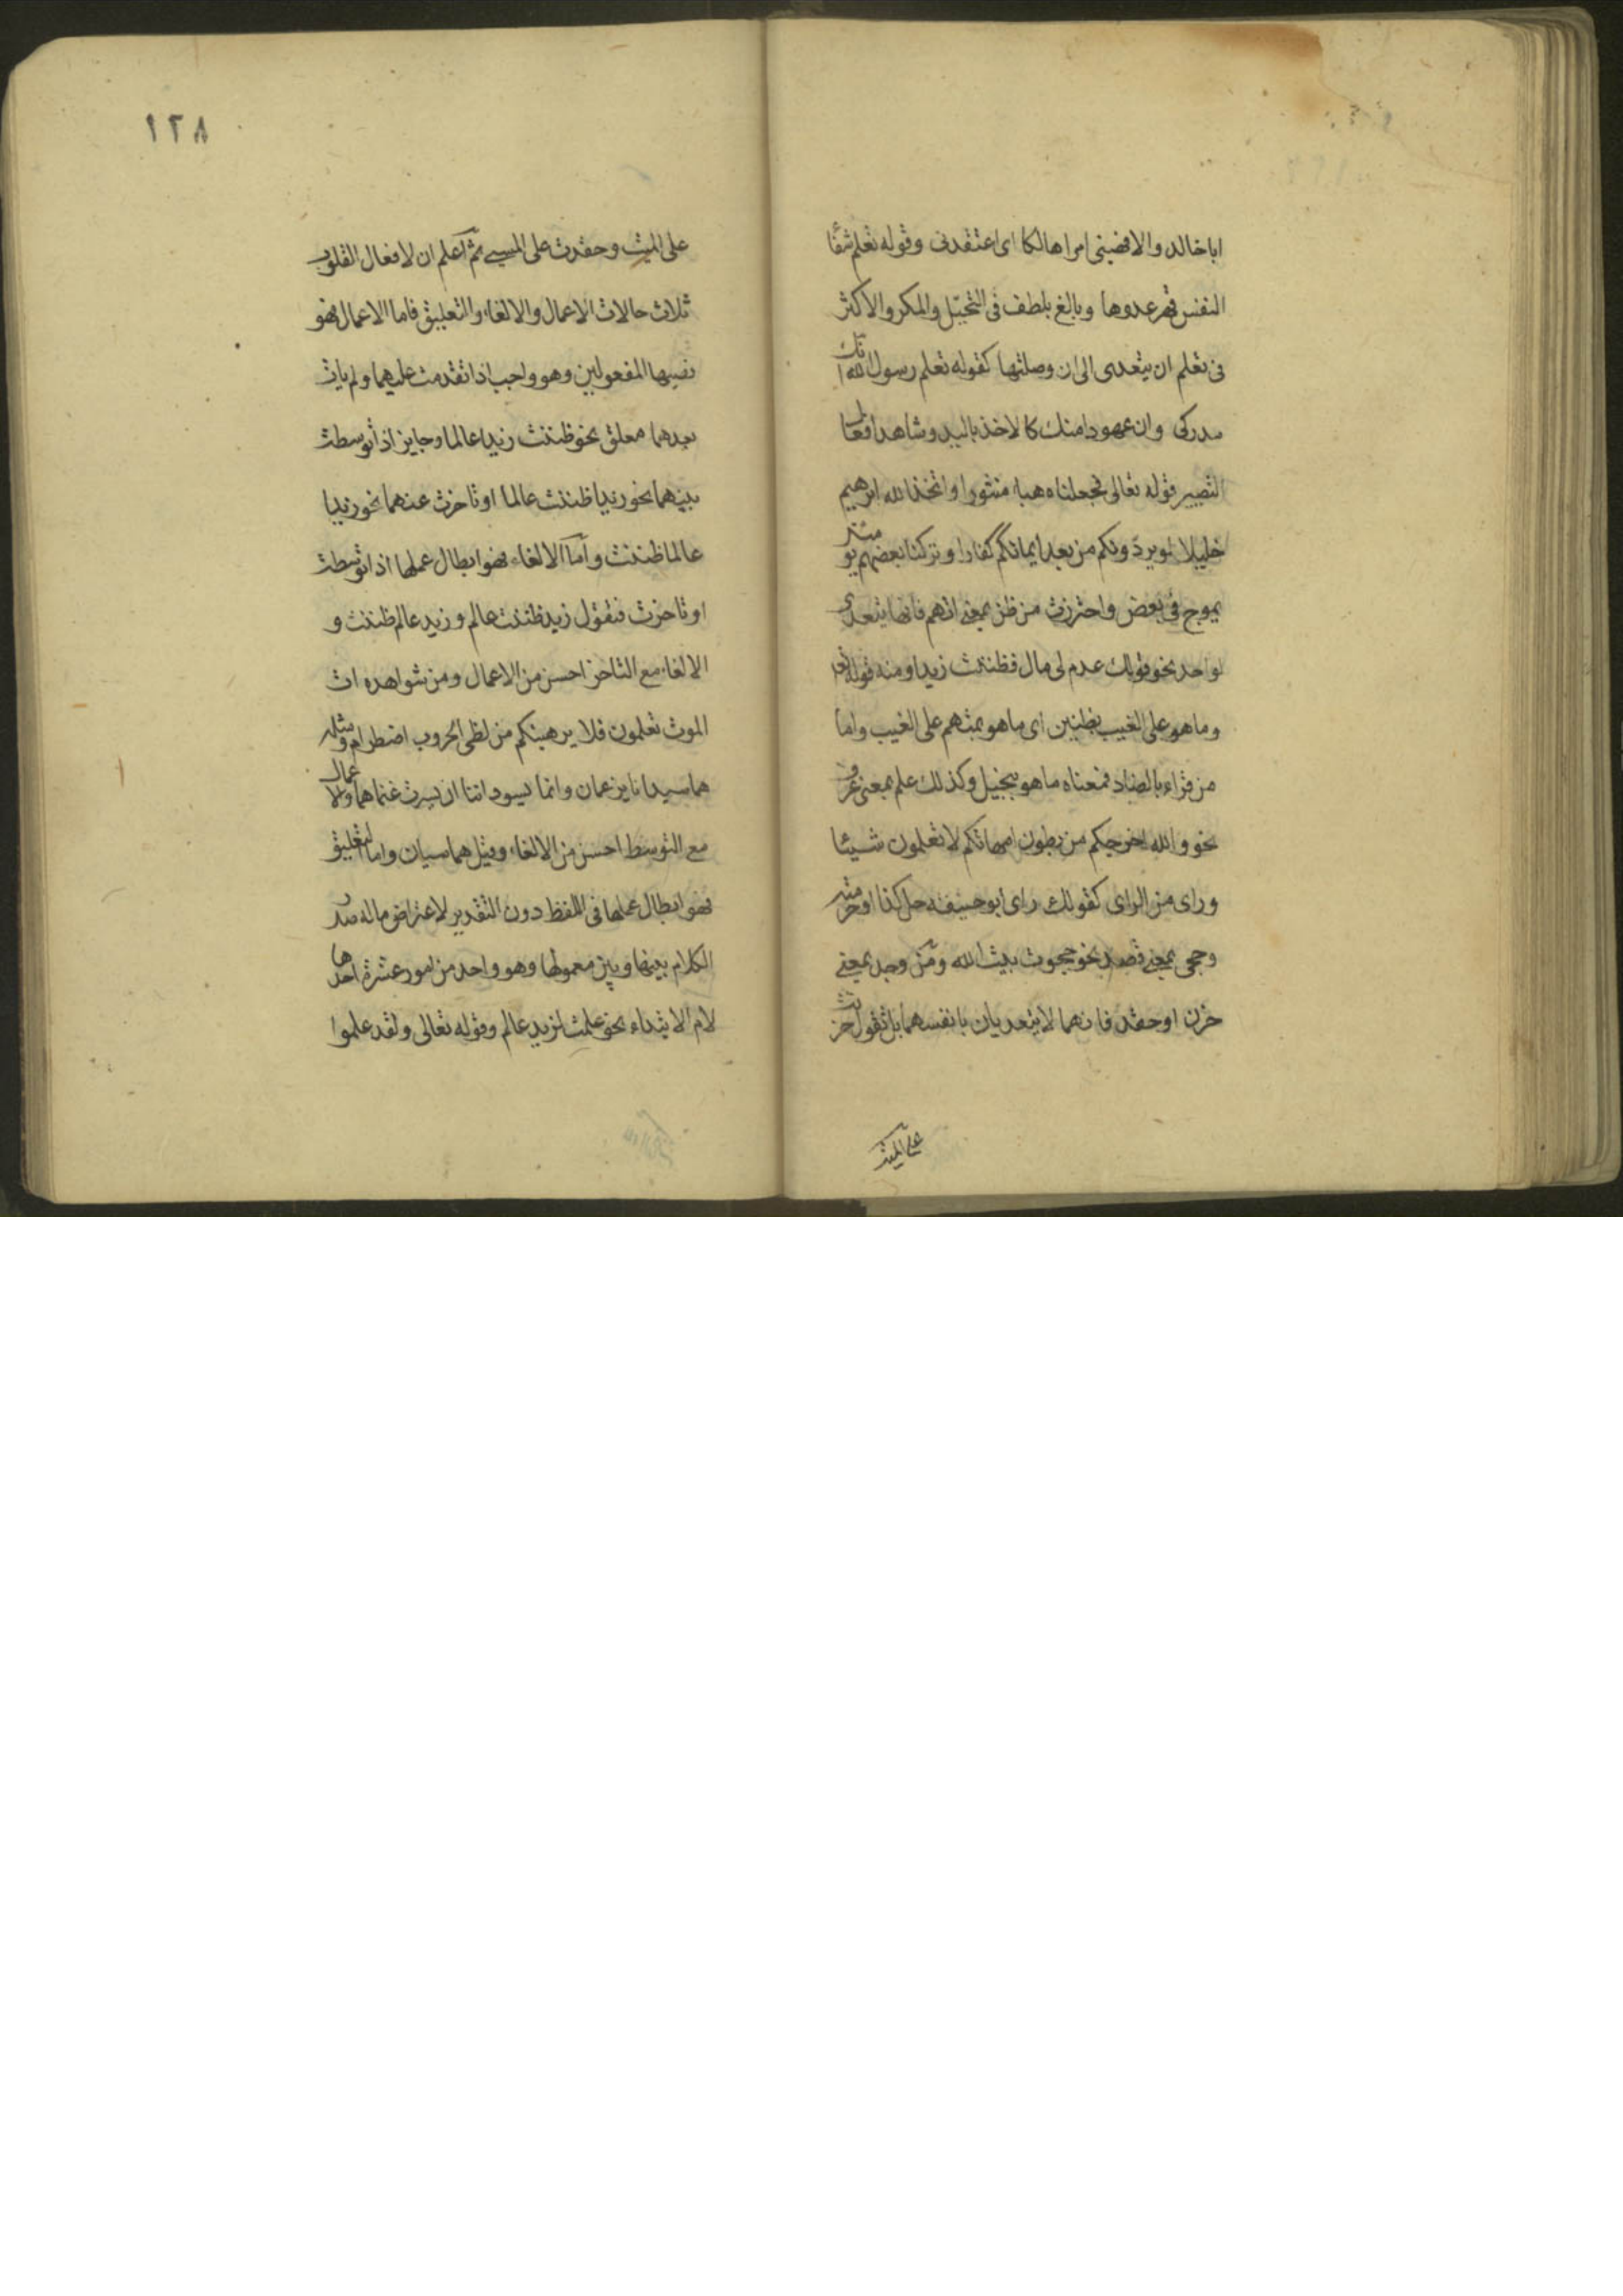 ابا خالد والا فهبنى امرا هالكا اى اعتقدنى وقوله تعلم شفا
النفس قهر عدوها وبالغ بلطف فى التحيّل والمكر والاكثر
فى تعلم ان يتعدى الى ان وصلتها كقوله تعلم رسول الله انك
مدركى وان عهودا منك كالاخذ باليد وشاهد افعال
التصيير قوله تعالى فجعلناه هباء منثورا واتخذ الله ابرهيم
خليلا لو يردّونكم من بعد ايمانكم كفارا وتركنا بعضهم يومئذ
يموج فى بعض واحترزت من ظن بمعنى اتهم فانها يتعدى
لواحد نحو قولك عدم لى مال فظننت زيدا ومنه قوله تعالى
وما هو على الغيب بظنين اى ما هو بمتهم على الغيب واما
من قراء بالضاد فمعناه ما هو ببخيل وكذلك علم بمعنى عرف
نحو والله اخرجكم من بطون امهاتكم لا تعلمون شيئا
وراى من الراى كقولك راى ابو حنيفه حل كذا او حرمته
وحجى بمعنى قصد نحو حجوت بيت الله ومن وجد بمعنى
حزن او حقد فانهما لا يتعديان بانفسهما بل تقول حزنت
على الميت
على الميت وحقدت على المسيى ثم اعلم ان لافعال القلوب
ثلاث حالات الاعمال والالغاء والتعليق فاما الاعمال فهو
نصبها المفعولين وهو واجب اذا تقدمت عليهما ولم يات
بعدهما معلق نحو ظننت زيدا عالما وجايز اذا توسطت
بينهما نحو زيدا ظننت عالما او تاخرت عنهما نحو زيدا
عالما ظننت واما الالغاء فهو ابطال عملها اذا توسطت
او تاخرت فتقول زيد ظننت عالم وزيد عالم ظننت و
الالغاء مع التاخر احسن من الاعمال ومن شواهده ات
الموت تعلمون فلا يرهبنكم من لظى الحروب اضطرام ومثله
هما سيدانا يزعمان وانما يسوداننا ان يسرت غنماهما والاعمال
مع التوسط احسن من الالغاء وقيل هما سيان واما التعليق
فهو ابطال عملها فى اللفظ دون التقدير لاعتراض ماله صدر
الكلام بينها وبين معمولها وهو واحد من امور عشرة احدها
لام الابتداء نحو علمت لزيد عالم وقوله تعالى ولقد علموا
١٢٨